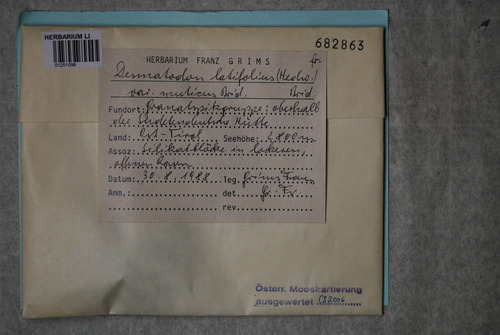 HERBARIUM LI
682863
HERBARIUM FRANZ GRIMS
Dermatodon latifolius (Hedw.)
var. muticus Brid. Brid.
Fundort: oberhalb
der Hütte
Land: Ost-Tirol Seehöhe: 2800 m
Assoz: Silikatblöcke in lockerem,
offenen Rasen
Datum: 30.8.1988 leg. Grims Franz
Anm.: det. Gr. Fr.
rev.
Österr. Mooskartierung
ausgewertet